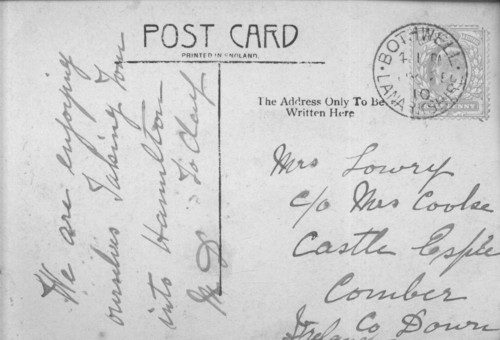 POST CARD
PRINTED IN ENGLAND.
BOTHWELL
LANARKSHIRE
10
The Address Only To Be
Written Here
We are enjoying
ourselves Taking Tom
into Hamilton
To Day
Mrs Lowry
c/o Mrs Cooke
Castle Espie
Comber
Co Down
Ireland